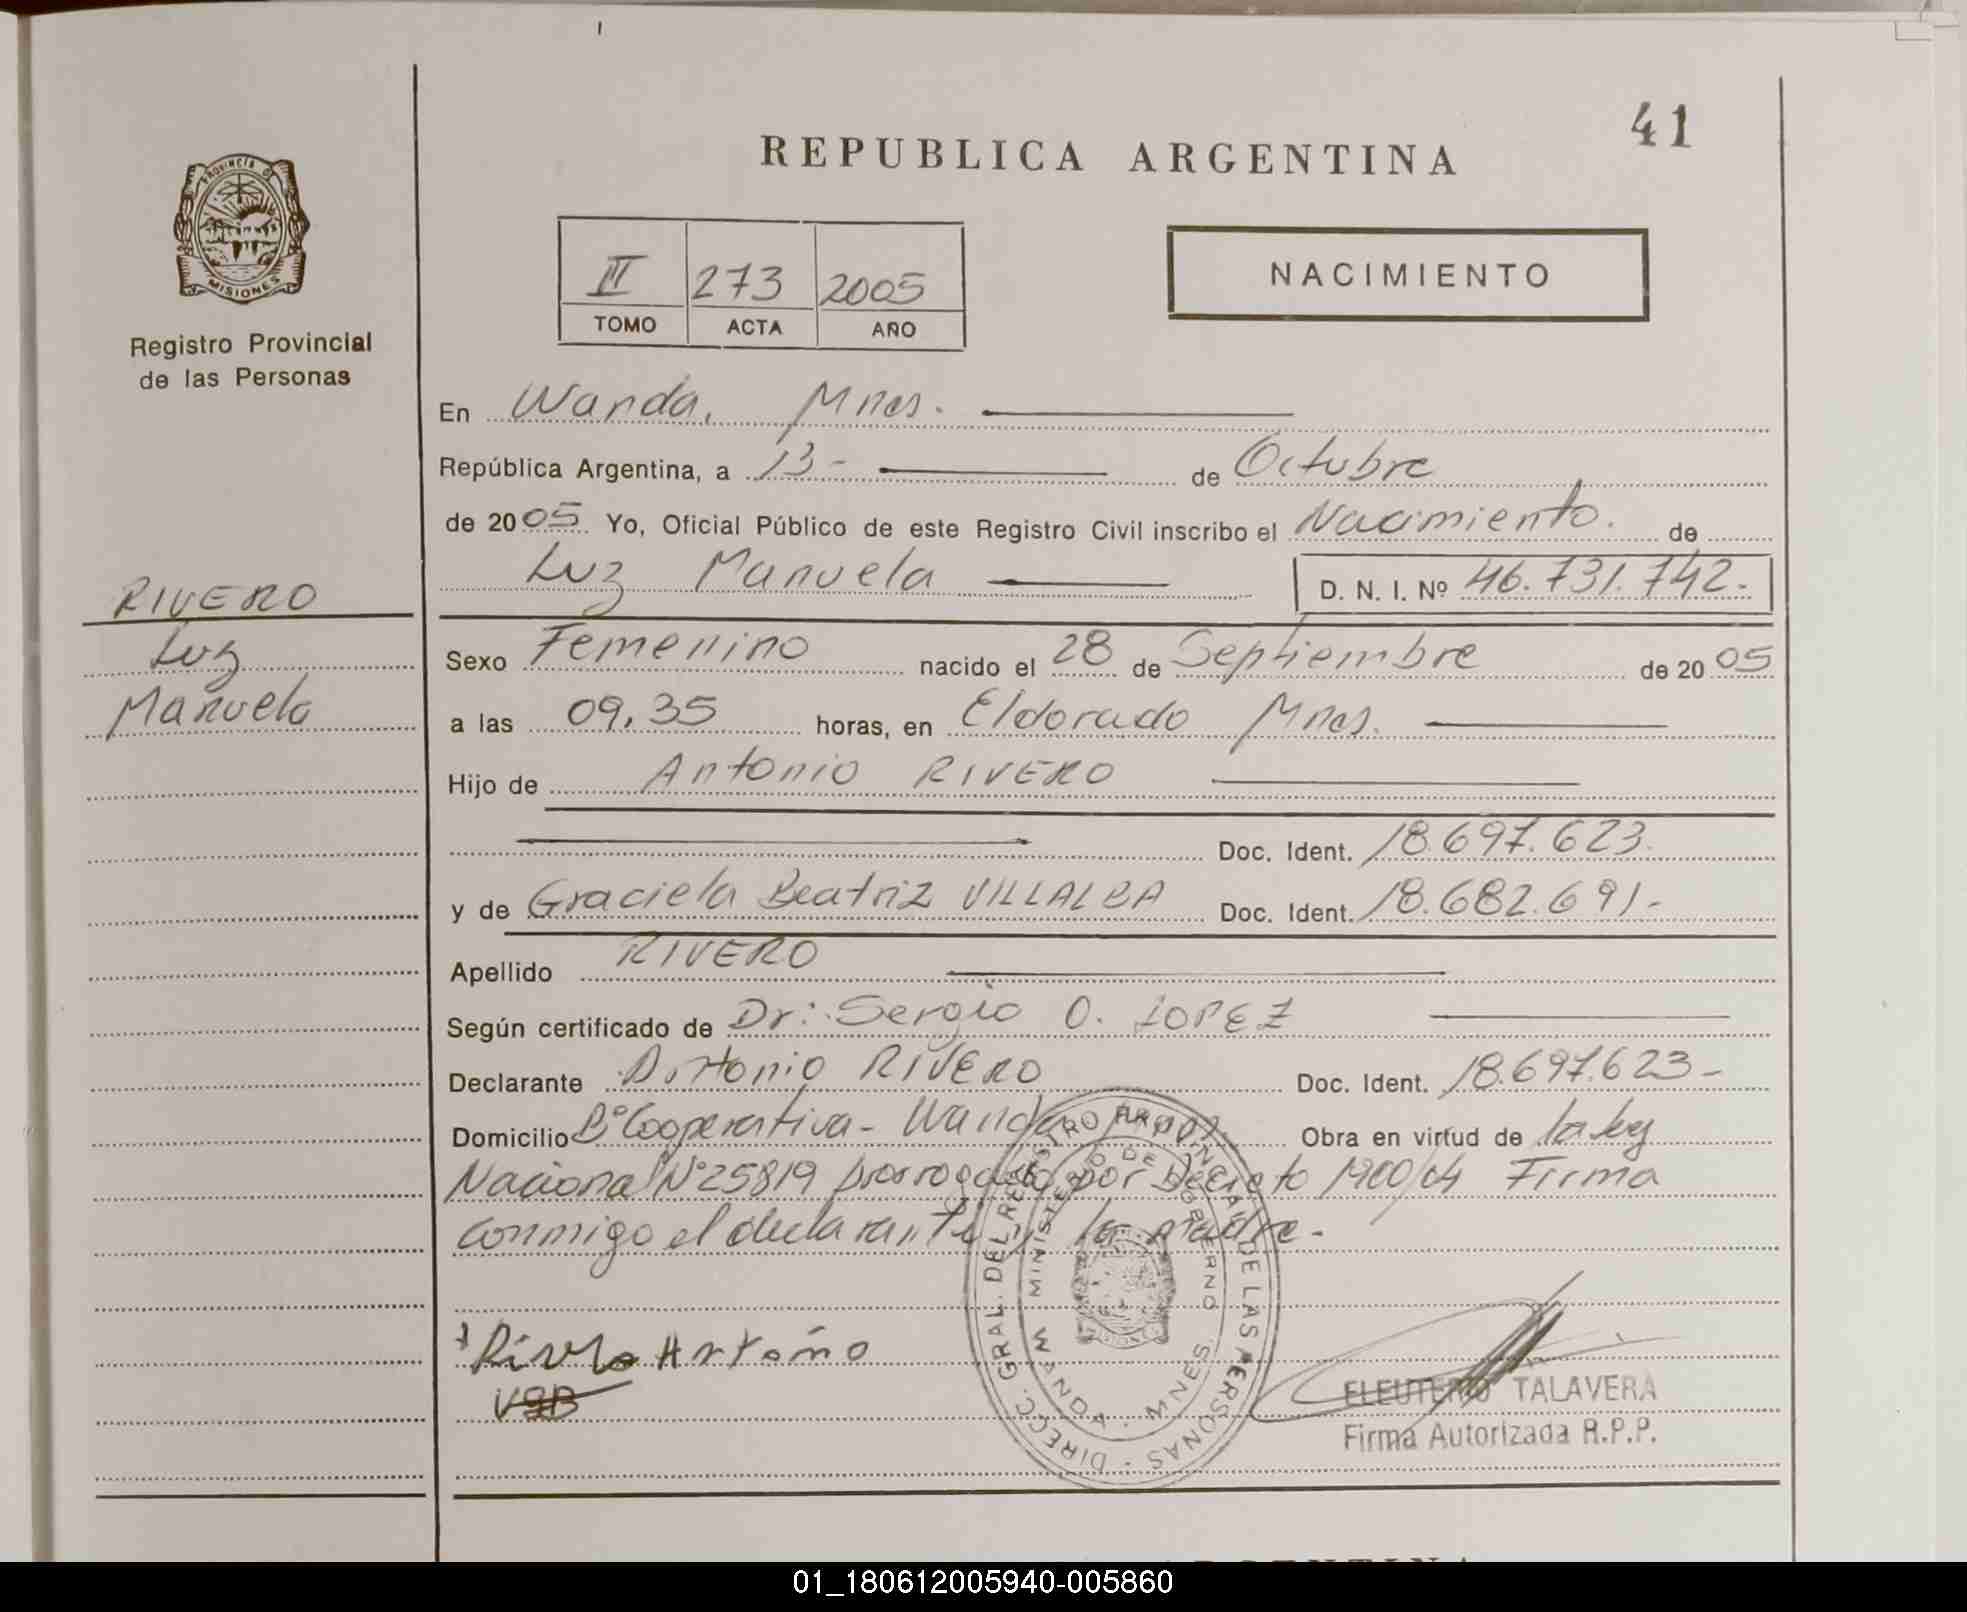 41
REPUBLICA ARGENTINA
PROVINCIA DE
MISIONES
Registro Provincial
de las Personas
II 273 2005
TOMO ACTA AÑO
NACIMIENTO
En Wanda, Mnes.
República Argentina, a 13- de Octubre
de 2005 Yo, Oficial Público de este Registro Civil inscribo el Nacimiento. de
Luz Manuela D. N. I. Nº 46.731.742.-
RIVERO
Luz
Manuela
Sexo Femenino nacido el 28 de Septiembre de 2005
a las 09.35 horas, en Eldorado Mnes.
Hijo de Antonio RIVERO
Doc. Ident. 18.697.623.
y de Graciela Beatriz VILLALBA Doc. Ident. 18.682.691.-
Apellido RIVERO
Según certificado de Dr: Sergio O. LOPEZ
Declarante Antonio RIVERO Doc. Ident. 18.697.623-
Domicilio Bº Cooperativa - Wanda Mnes. Obra en virtud de la ley
Nacional Nº 25819 prorrogado por Decreto 1900/04 Firma
conmigo el declarante y la madre.-
DIREC. GRAL. DEL REGISTRO PROVINCIAL DE LAS PERSONAS
MINISTERIO DE GOBIERNO
WANDA - MNES.
Rivero Antonio
VGB
ELEUTERIO TALAVERA
Firma Autorizada R.P.P.
01_180612005940-005860